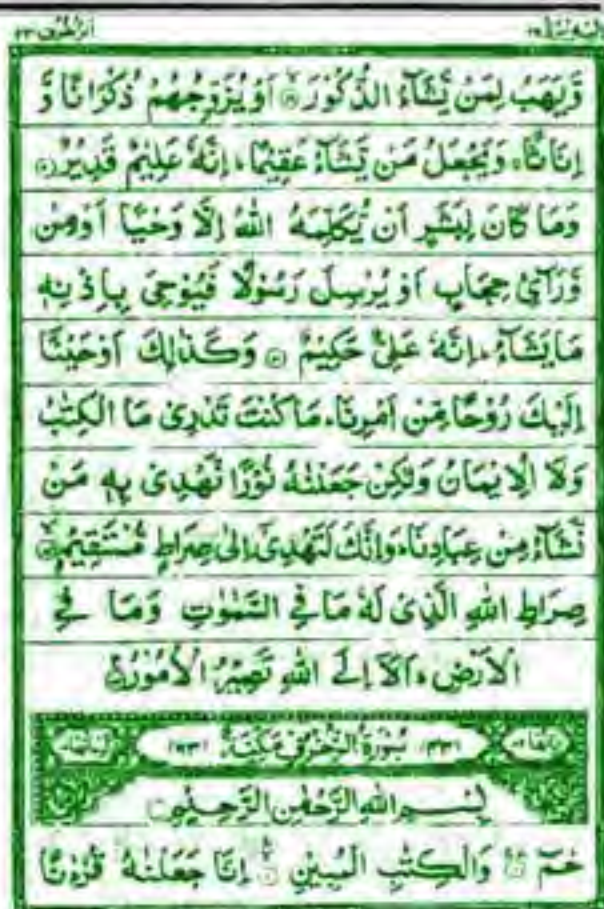 اليه يرد ٢٥ الزخرف ٤٣
وَّيَهَبُ لِمَنْ يَّشَآءُ الذُّكُوْرَ ۙ اَوْ يُزَوِّجُهُمْ ذُكْرَانًا وَّ
اِنَاثًا ۚ وَيَجْعَلُ مَنْ يَّشَآءُ عَقِيْمًا ۚ اِنَّهٗ عَلِيْمٌ قَدِيْرٌ
وَمَا كَانَ لِبَشَرٍ اَنْ يُّكَلِّمَهُ اللّٰهُ اِلَّا وَحْيًا اَوْ مِنْ
وَّرَآئِ حِجَابٍ اَوْ يُرْسِلَ رَسُوْلًا فَيُوْحِىَ بِاِذْنِهٖ
مَا يَشَآءُ ۚ اِنَّهٗ عَلِىٌّ حَكِيْمٌ وَكَذٰلِكَ اَوْحَيْنَآ
اِلَيْكَ رُوْحًا مِّنْ اَمْرِنَا ۚ مَا كُنْتَ تَدْرِىْ مَا الْكِتٰبُ
وَلَا الْاِيْمَانُ وَلٰكِنْ جَعَلْنٰهُ نُوْرًا نَّهْدِىْ بِهٖ مَنْ
نَّشَآءُ مِنْ عِبَادِنَا ۚ وَاِنَّكَ لَتَهْدِىْٓ اِلٰى صِرَاطٍ مُّسْتَقِيْمٍ
صِرَاطِ اللّٰهِ الَّذِىْ لَهٗ مَا فِى السَّمٰوٰتِ وَمَا فِى
الْاَرْضِ ۚ اَلَآ اِلَى اللّٰهِ تَصِيْرُ الْاُمُوْرُ
(٤٣) سُوْرَةُ الزُّخْرُفِ مَكِّيَّةٌ (٦٣)
بِسْمِ اللّٰهِ الرَّحْمٰنِ الرَّحِيْمِ
حٰمٓ وَالْكِتٰبِ الْمُبِيْنِ اِنَّا جَعَلْنٰهُ قُرْءٰنًا